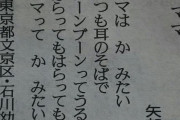 ママ
矢
マは　か　みたい
つも耳のそばで
ーンプーンってうる
らってもはらっても
マって　か　みたい
東京都文京区・石川幼